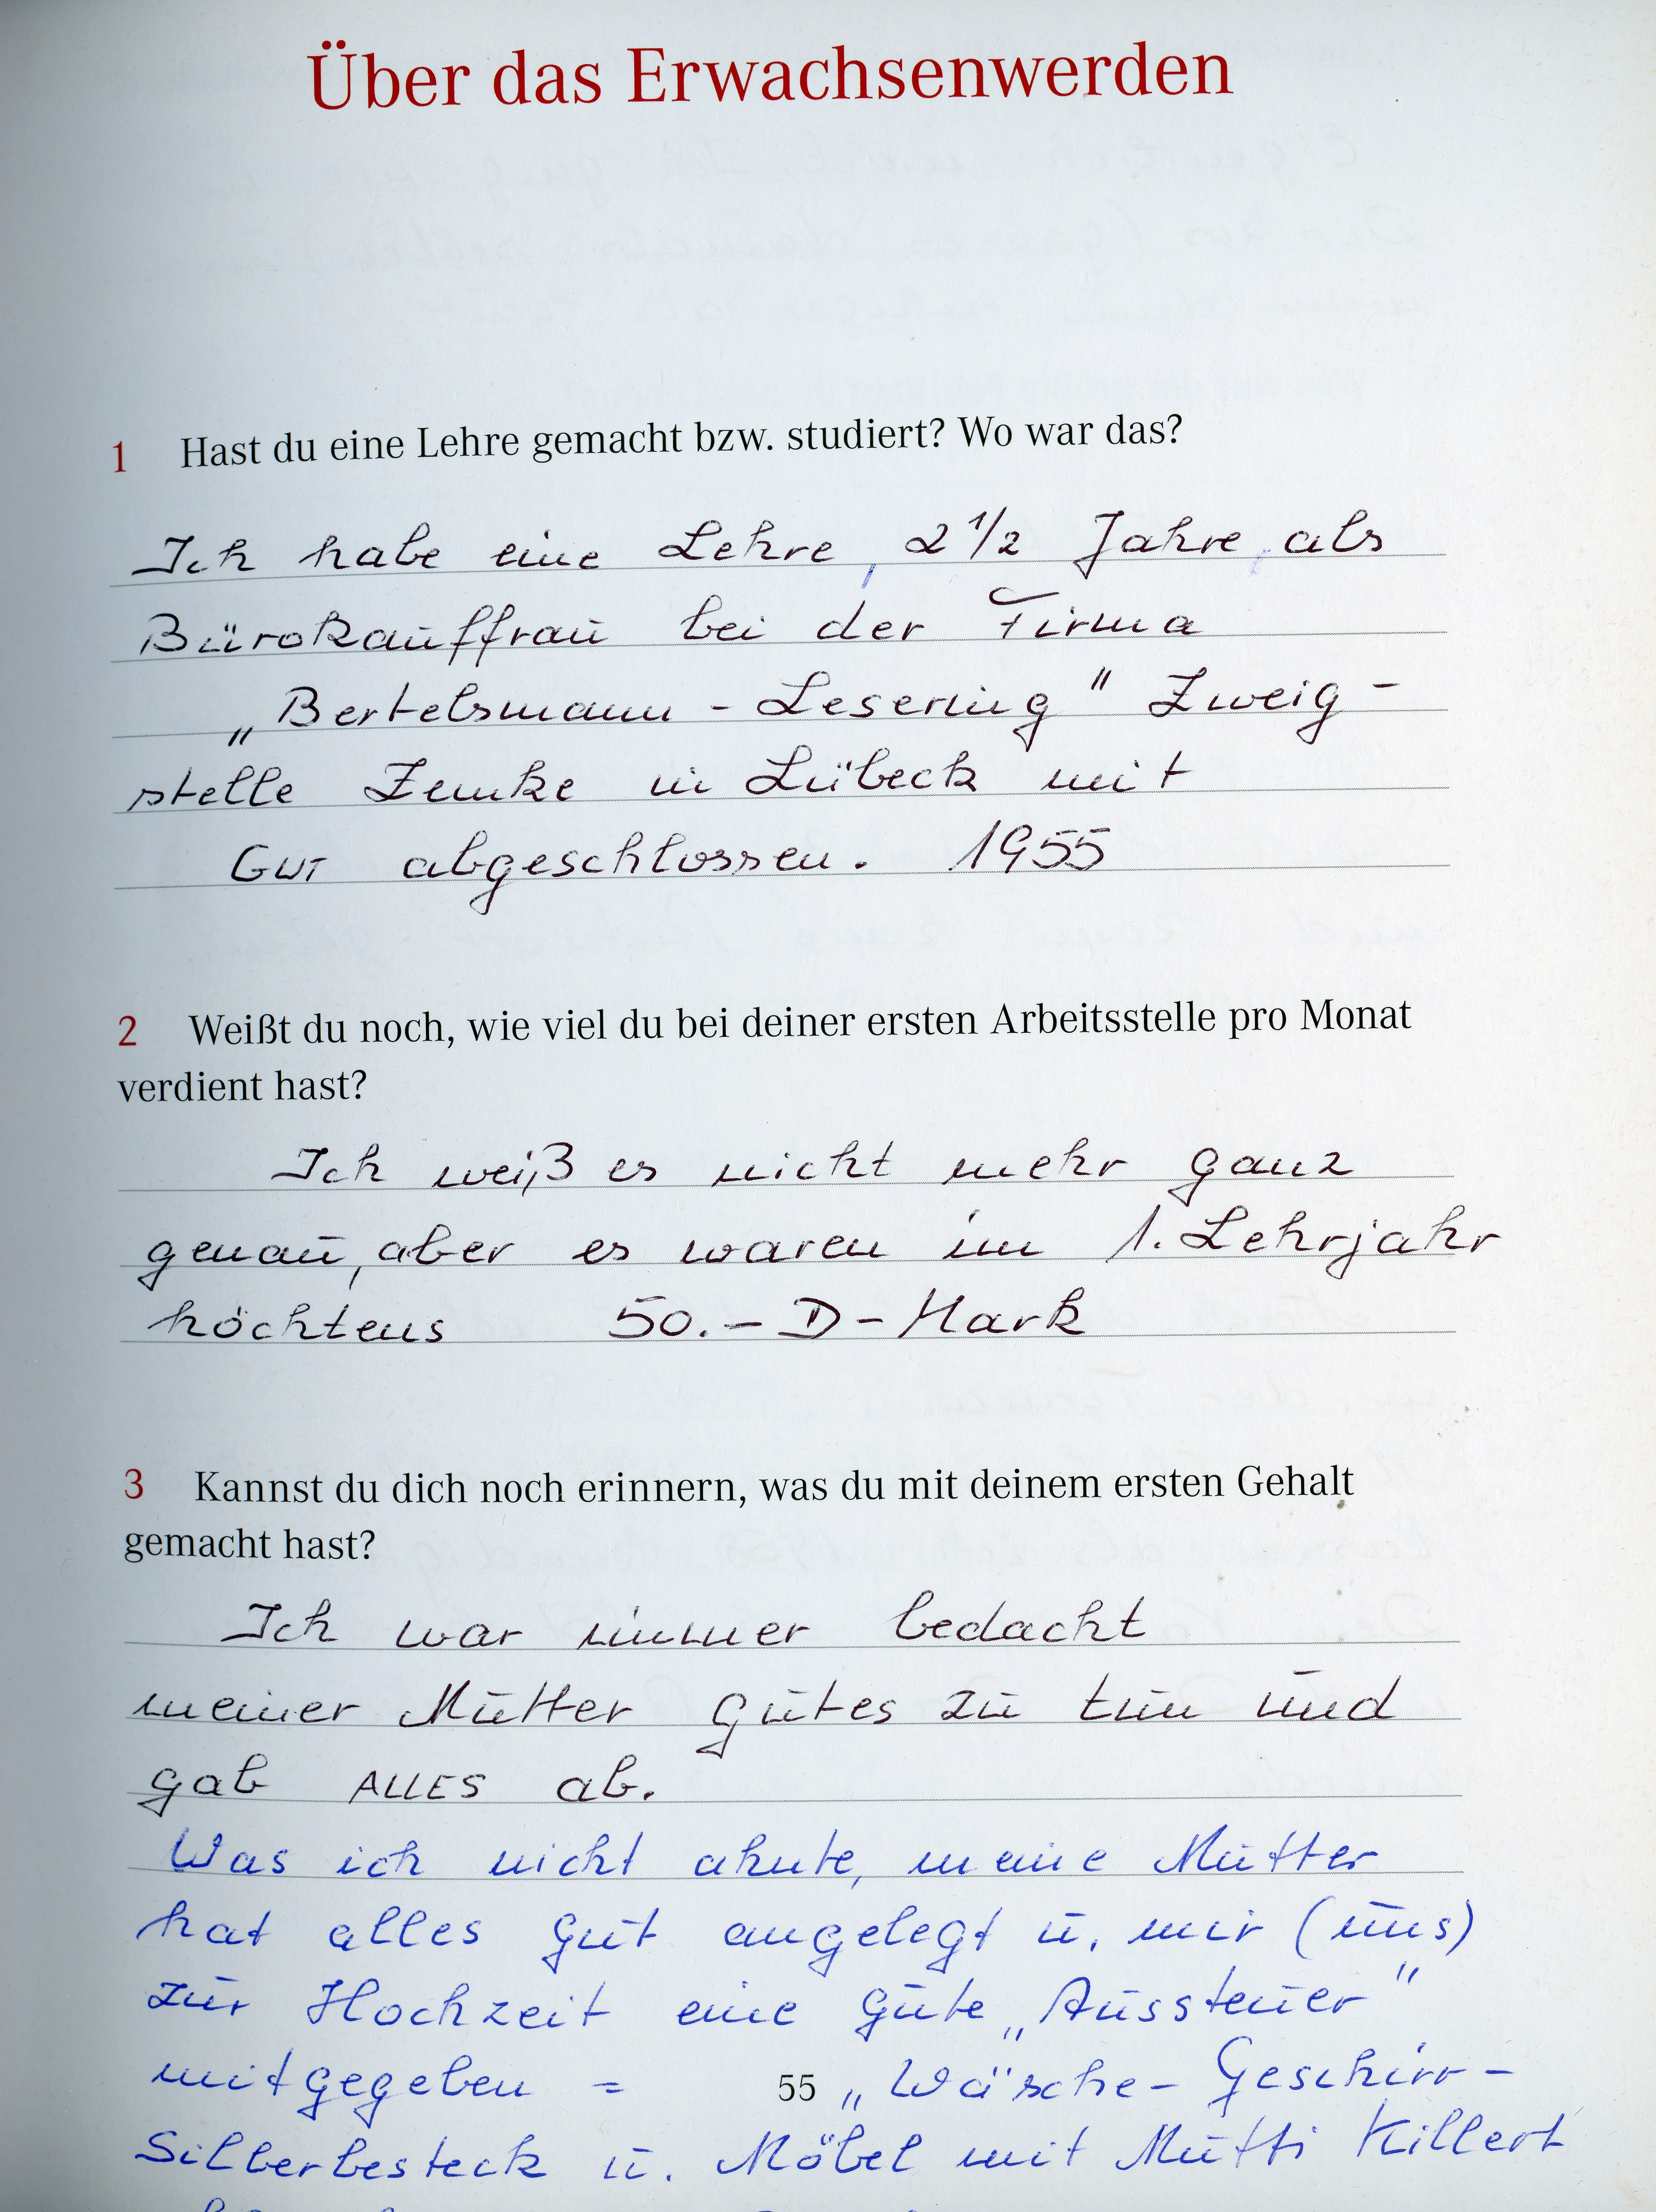 Über das Erwachsenwerden
1 Hast du eine Lehre gemacht bzw. studiert? Wo war das?
Ich habe eine Lehre, 2 1/2 Jahre, als
Bürokauffrau bei der Firma
„Bertelsmann - Lesering" Zweig-
stelle Zemke in Lübeck mit
GUT abgeschlossen. 1955
2 Weißt du noch, wie viel du bei deiner ersten Arbeitsstelle pro Monat
verdient hast?
Ich weiß es nicht mehr ganz
genau, aber es waren im 1. Lehrjahr
höchtens 50.- D-Mark
3 Kannst du dich noch erinnern, was du mit deinem ersten Gehalt
gemacht hast?
Ich war immer bedacht
meiner Mutter Gutes zu tun und
gab ALLES ab.
Was ich nicht ahnte, meine Mutter
hat alles gut angelegt u. mir (uns)
zur Hochzeit eine gute „Aussteuer"
mitgegeben = „Wäsche- Geschirr-
55
Silberbesteck u. Möbel mit Mutti Killert